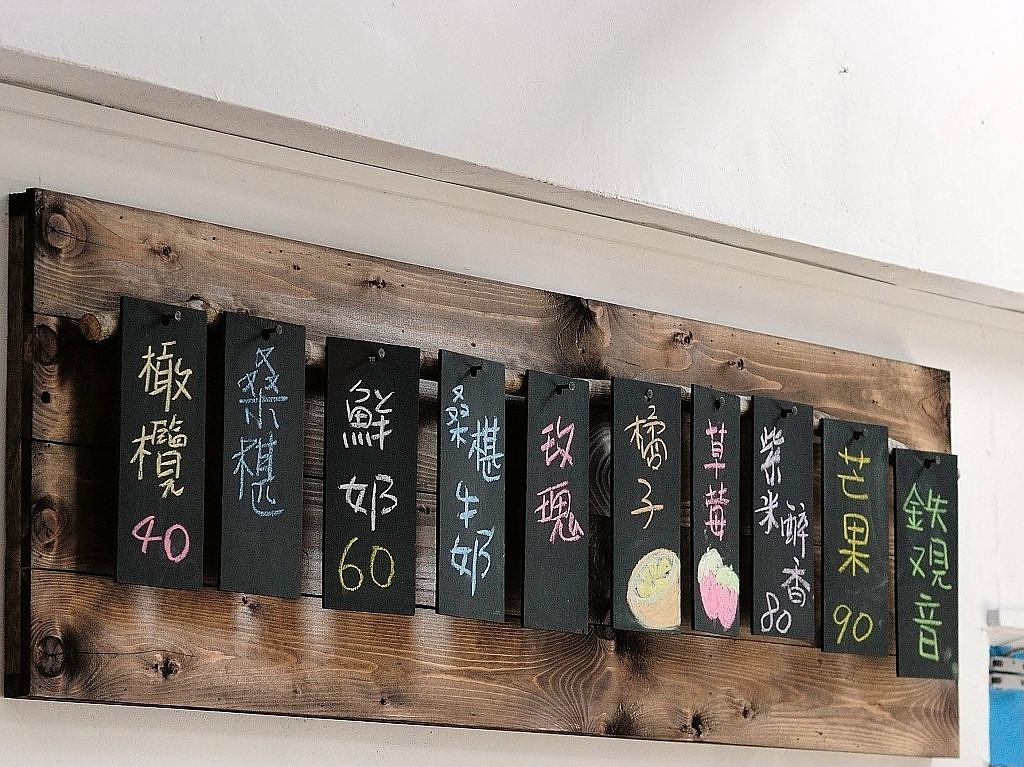 橄欖
40
桑椹
鮮奶
60
桑椹
牛奶
玫瑰
橘子
草莓
紫米
醉香
80
芒果
90
鉄观音